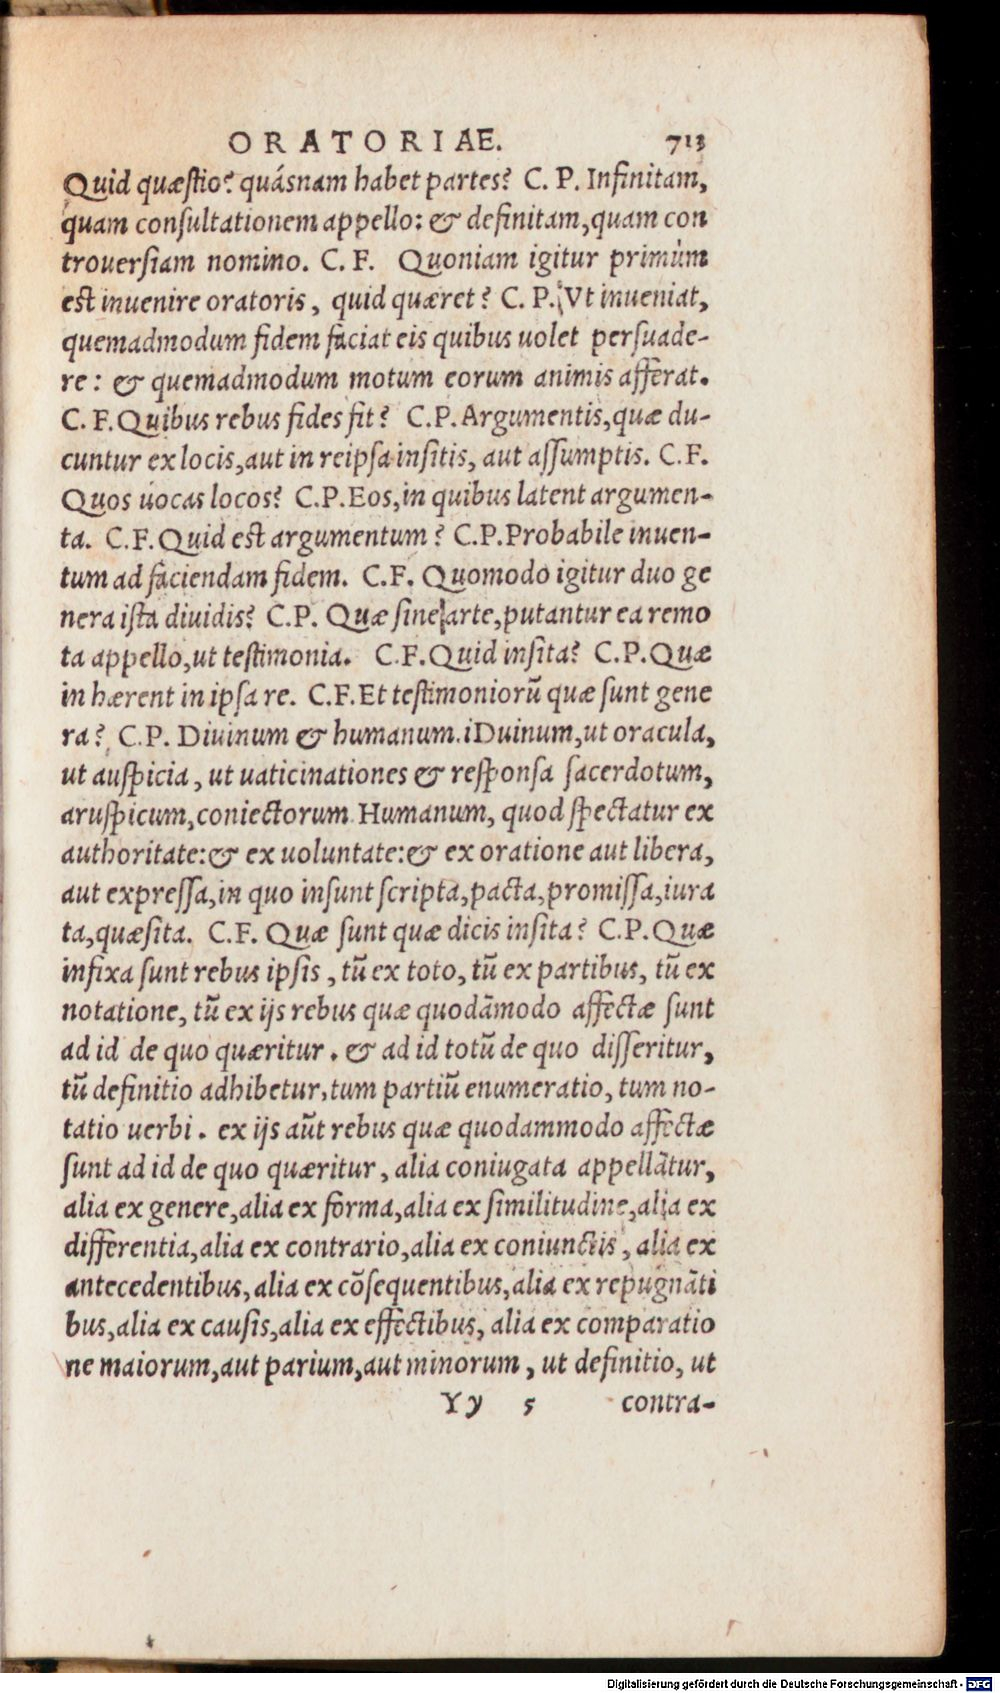 ORATORIAE. 713
Quid quæstio? quásnam habet partes? C. P. Infinitam,
quam consultationem appello: & definitam, quam con
trouersiam nomino. C. F. Quoniam igitur primùm
est inuenire oratoris, quid quæret? C. P. Vt inueniat,
quemadmodum fidem faciat eis quibus uolet persuade-
re: & quemadmodum motum eorum animis afferat.
C. F. Quibus rebus fides fit? C.P. Argumentis, quæ du-
cuntur ex locis, aut in reipsa insitis, aut assumptis. C. F.
Quos uocas locos? C.P. Eos, in quibus latent argumen-
ta. C. F. Quid est argumentum? C.P. Probabile inuen-
tum ad faciendam fidem. C. F. Quomodo igitur duo ge
nera ista diuidis? C.P. Quæ sine arte, putantur ea remo
ta appello, ut testimonia. C.F. Quid insita? C.P. Quæ
in hærent in ipsa re. C.F. Et testimoniorũ quæ sunt gene
ra? C.P. Diuinum & humanum. iDuinum, ut oracula,
ut auspicia, ut uaticinationes & responsa sacerdotum,
aruspicum, coniectorum Humanum, quod spectatur ex
authoritate: & ex uoluntate: & ex oratione aut libera,
aut expressa, in quo insunt scripta, pacta, promissa, iura
ta, quæsita. C.F. Quæ sunt quæ dicis insita? C.P. Quæ
infixa sunt rebus ipsis, tũ ex toto, tũ ex partibus, tũ ex
notatione, tũ ex ijs rebus quæ quodãmodo affectæ sunt
ad id de quo quæritur. & ad id totũ de quo disseritur,
tũ definitio adhibetur, tum partiũ enumeratio, tum no-
tatio uerbi. ex ijs aũt rebus quæ quodammodo affectæ
sunt ad id de quo quæritur, alia coniugata appellãtur,
alia ex genere, alia ex forma, alia ex similitudine, alia ex
differentia, alia ex contrario, alia ex coniunctis, alia ex
antecedentibus, alia ex cõsequentibus, alia ex repugnãti
bus, alia ex causis, alia ex effectibus, alia ex comparatio
ne maiorum, aut parium, aut minorum, ut definitio, ut
Yy 5 contra-
Digitalisierung gefördert durch die Deutsche Forschungsgemeinschaft - DFG